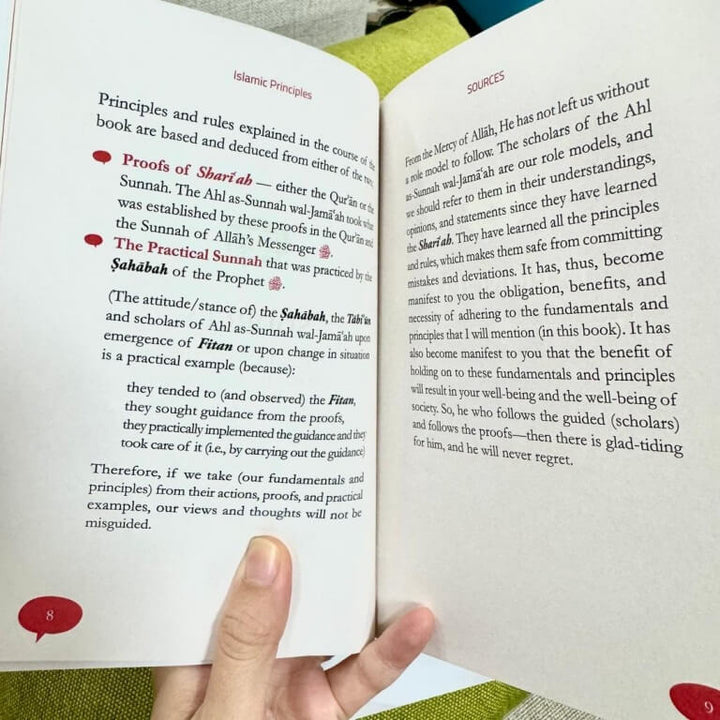 Islamic Principles
Principles and rules explained in the course of the
book are based and deduced from either of the two:
Proofs of Sharī'ah — either the Qur'ān or the
Sunnah. The Ahl as-Sunnah wal-Jamā'ah took what
was established by these proofs in the Qur'ān and
the Sunnah of Allāh's Messenger ﷺ.
The Practical Sunnah that was practiced by the
Ṣaḥābah of the Prophet ﷺ.
(The attitude/stance of) the Ṣaḥābah, the Tābi'īn
and scholars of Ahl as-Sunnah wal-Jamā'ah upon
emergence of Fitan or upon change in situation
is a practical example (because):
they tended to (and observed) the Fitan,
they sought guidance from the proofs,
they practically implemented the guidance and they
took care of it (i.e., by carrying out the guidance)
Therefore, if we take (our fundamentals and
principles) from their actions, proofs, and practical
examples, our views and thoughts will not be
misguided.
8
SOURCES
From the Mercy of Allāh, He has not left us without
a role model to follow. The scholars of the Ahl
as-Sunnah wal-Jamā'ah are our role models, and
we should refer to them in their understandings,
opinions, and statements since they have learned
the Sharī'ah. They have learned all the principles
and rules, which makes them safe from committing
mistakes and deviations. It has, thus, become
manifest to you the obligation, benefits, and
necessity of adhering to the fundamentals and
principles that I will mention (in this book). It has
also become manifest to you that the benefit of
holding on to these fundamentals and principles
will result in your well-being and the well-being of
society. So, he who follows the guided (scholars)
and follows the proofs—then there is glad-tiding
for him, and he will never regret.
9